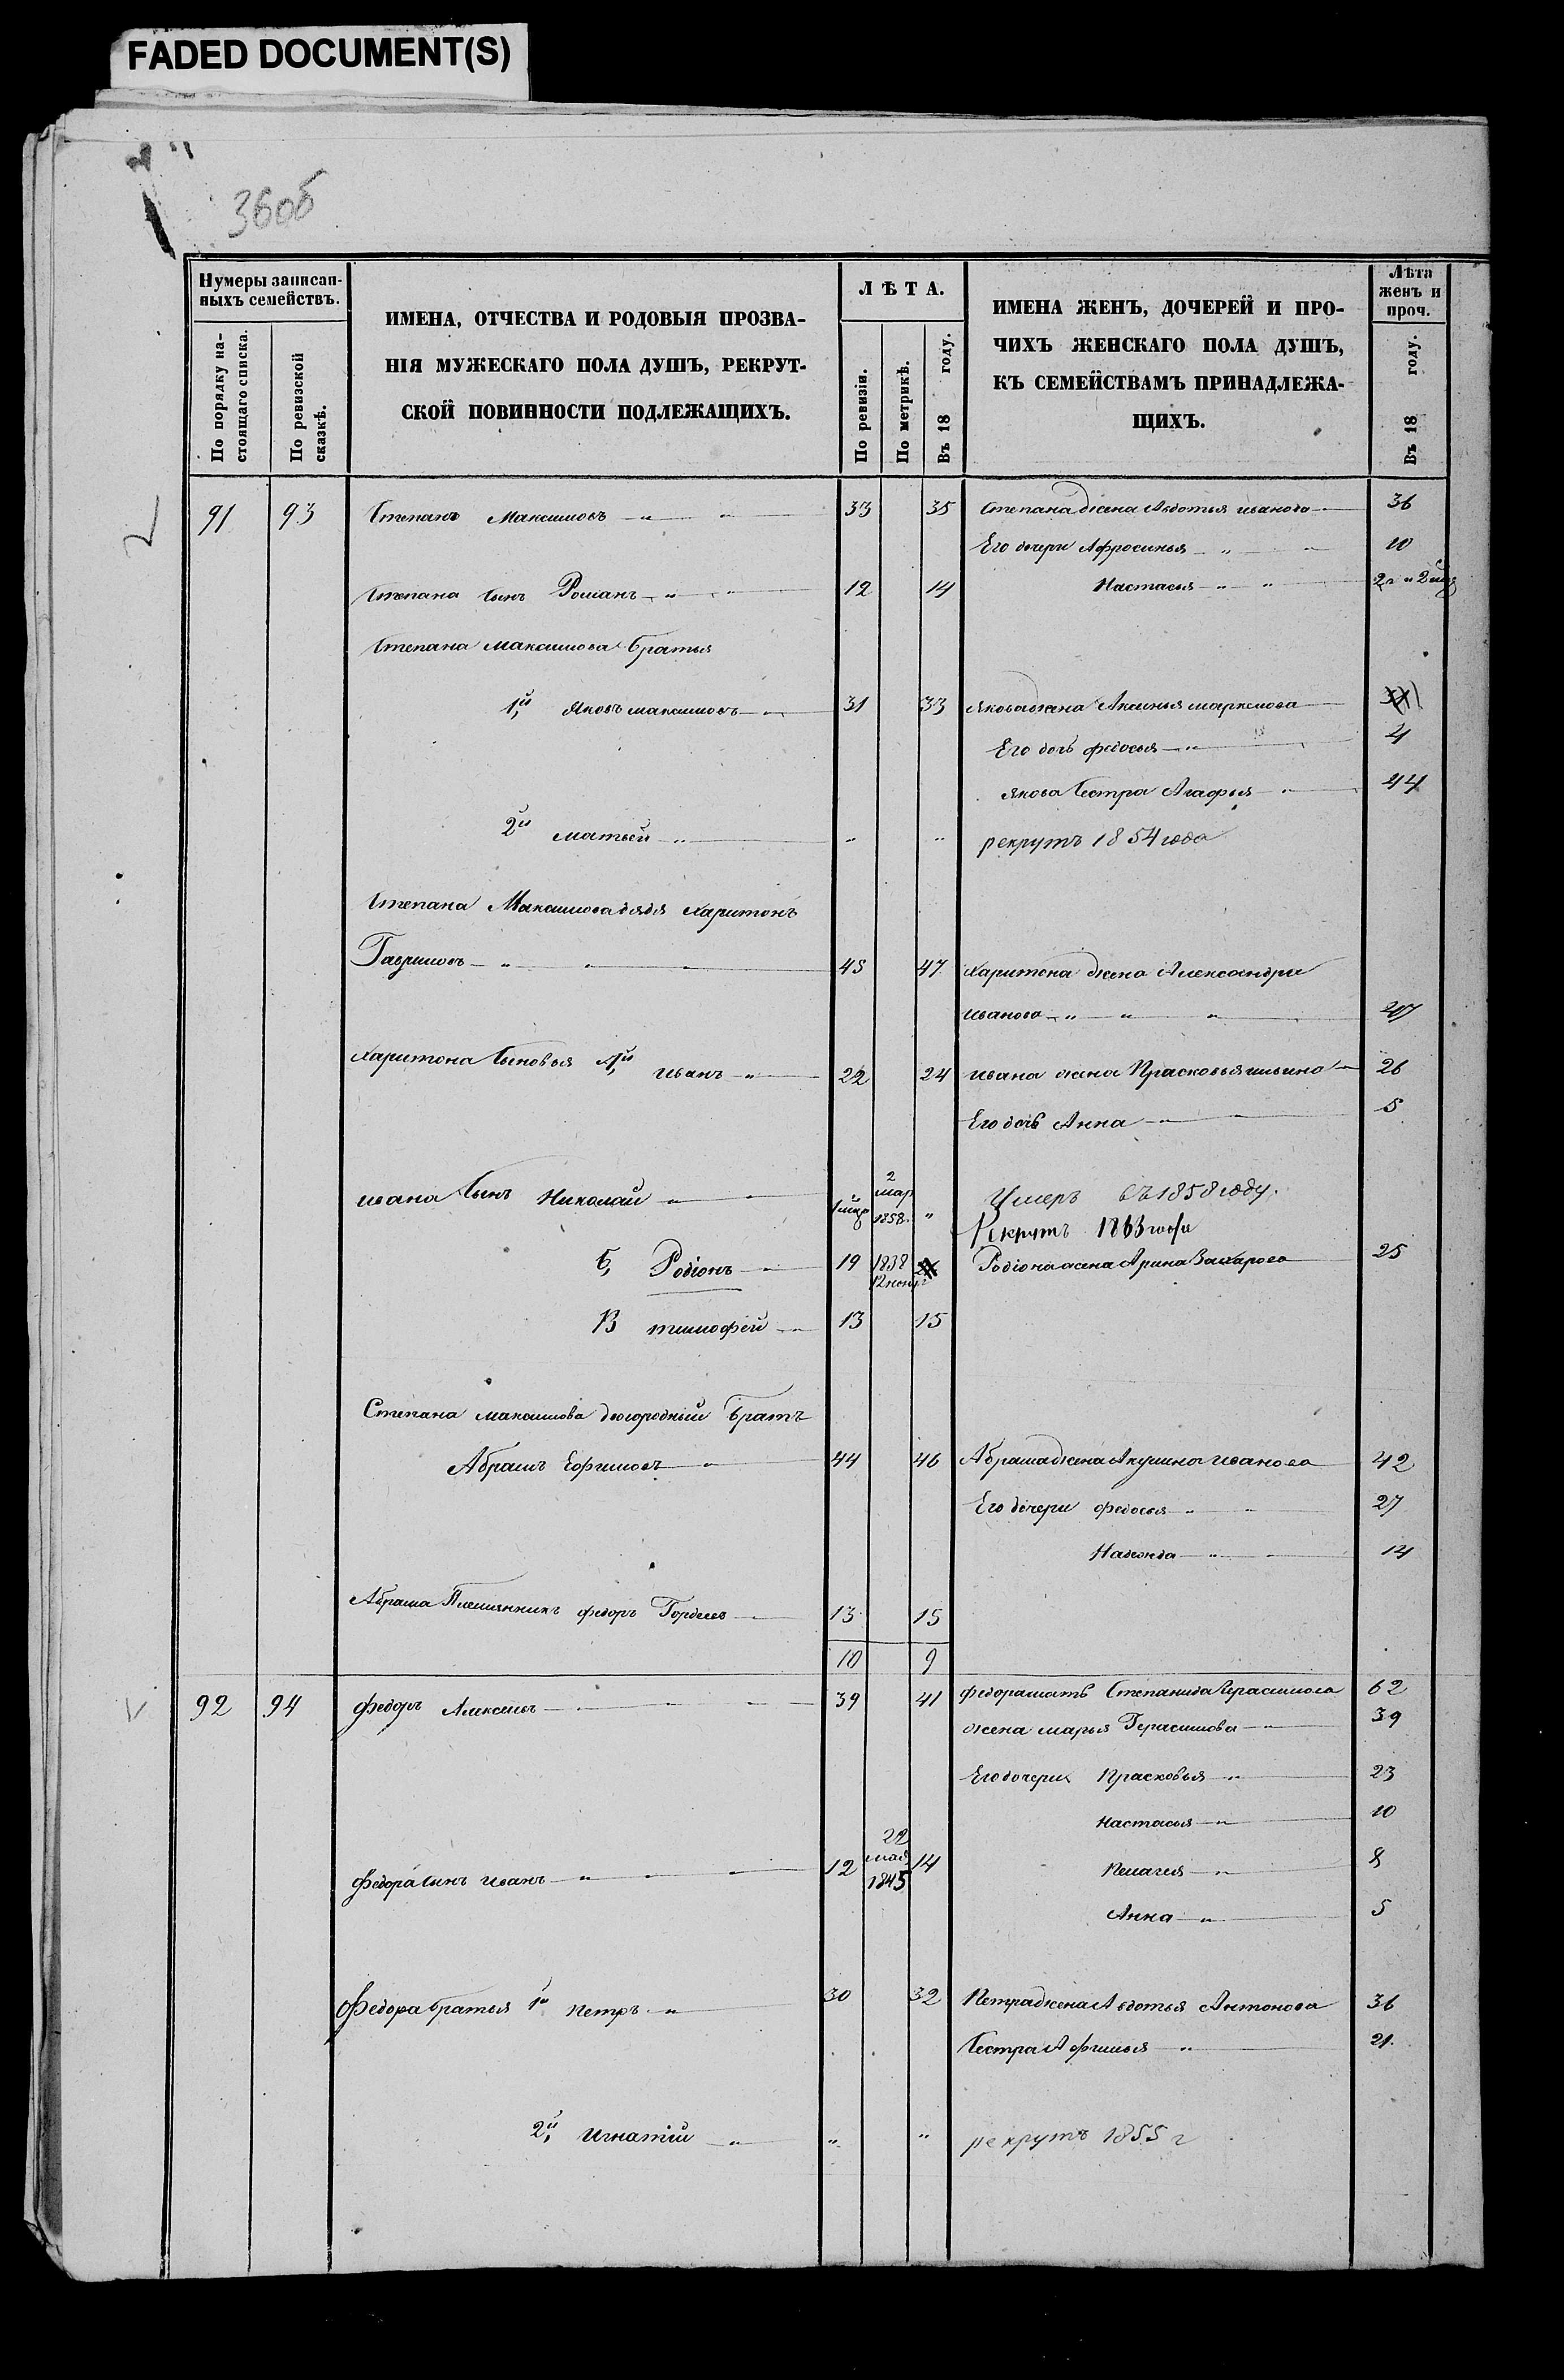 FADED DOCUMENT(S)
36об
Нумеры записан-
ныхъ семействъ.
По порядку на-
стоящаго списка.
По ревизской
сказкѣ.
ИМЕНА, ОТЧЕСТВА И РОДОВЫЯ ПРОЗВА-
НІЯ МУЖЕСКАГО ПОЛА ДУШЪ, РЕКРУТ-
СКОЙ ПОВИННОСТИ ПОДЛЕЖАЩИХЪ.
ЛѢТА.
По ревизіи.
По метрикѣ.
Въ 18 году.
ИМЕНА ЖЕНЪ, ДОЧЕРЕЙ И ПРО-
ЧИХЪ ЖЕНСКАГО ПОЛА ДУШЪ,
КЪ СЕМЕЙСТВАМЪ ПРИНАДЛЕЖА-
ЩИХЪ.
Лѣта
женъ и
проч.
Въ 18 году.
91 93 Степанъ Максимовъ 33 35 Степана жена Авдотья иванова 36
Его дочери Афросинья 10
Степана Сынъ Романъ 12 14 Настасья
Степана Максимова братья
1й Яковъ максимовъ 31 33 Якова жена Аксинья маркелова
Его дочь федосья 4
Якова Сестра Агафья 44
2й матвей " " рекрутъ 1854 года
Степана Максимова дядя Харитонъ
Гавриловъ 45 47 Харитона жена Александра
иванова
Харитона Сыновья иванъ 22 24 ивана жена Прасковья ильина 26
Его дочь Анна 5
ивана Сынъ Николай 2 мар 1858. " Умеръ въ 1858 году.
Рекрутъ 1863 года
Б, Родіонъ 19 1838 Родіона жена Арина Захарова 25
В тимофей 13 15
Степана максимова двоюродный братъ
Абрамъ Ефимовъ 44 46 Абрама жена Акулина иванова 42
Его дочери федосья 27
Надежда 14
Абрама Племянникъ федоръ Гордеевъ 13 15
10 9
92 94 федоръ Алексеевъ 39 41 федора мать Степанида Герасимова 62
жена марья Герасимова 39
Его дочери Прасковья 23
настасья 10
федора Сынъ иванъ 12 22 мая 1845 14 Пелагея 8
Анна 5
Федора братья 1й петръ 30 32 Петра жена Авдотья Антонова 36
Сестра Афимья 21.
2й, игнатій " " рекрутъ 1855 г